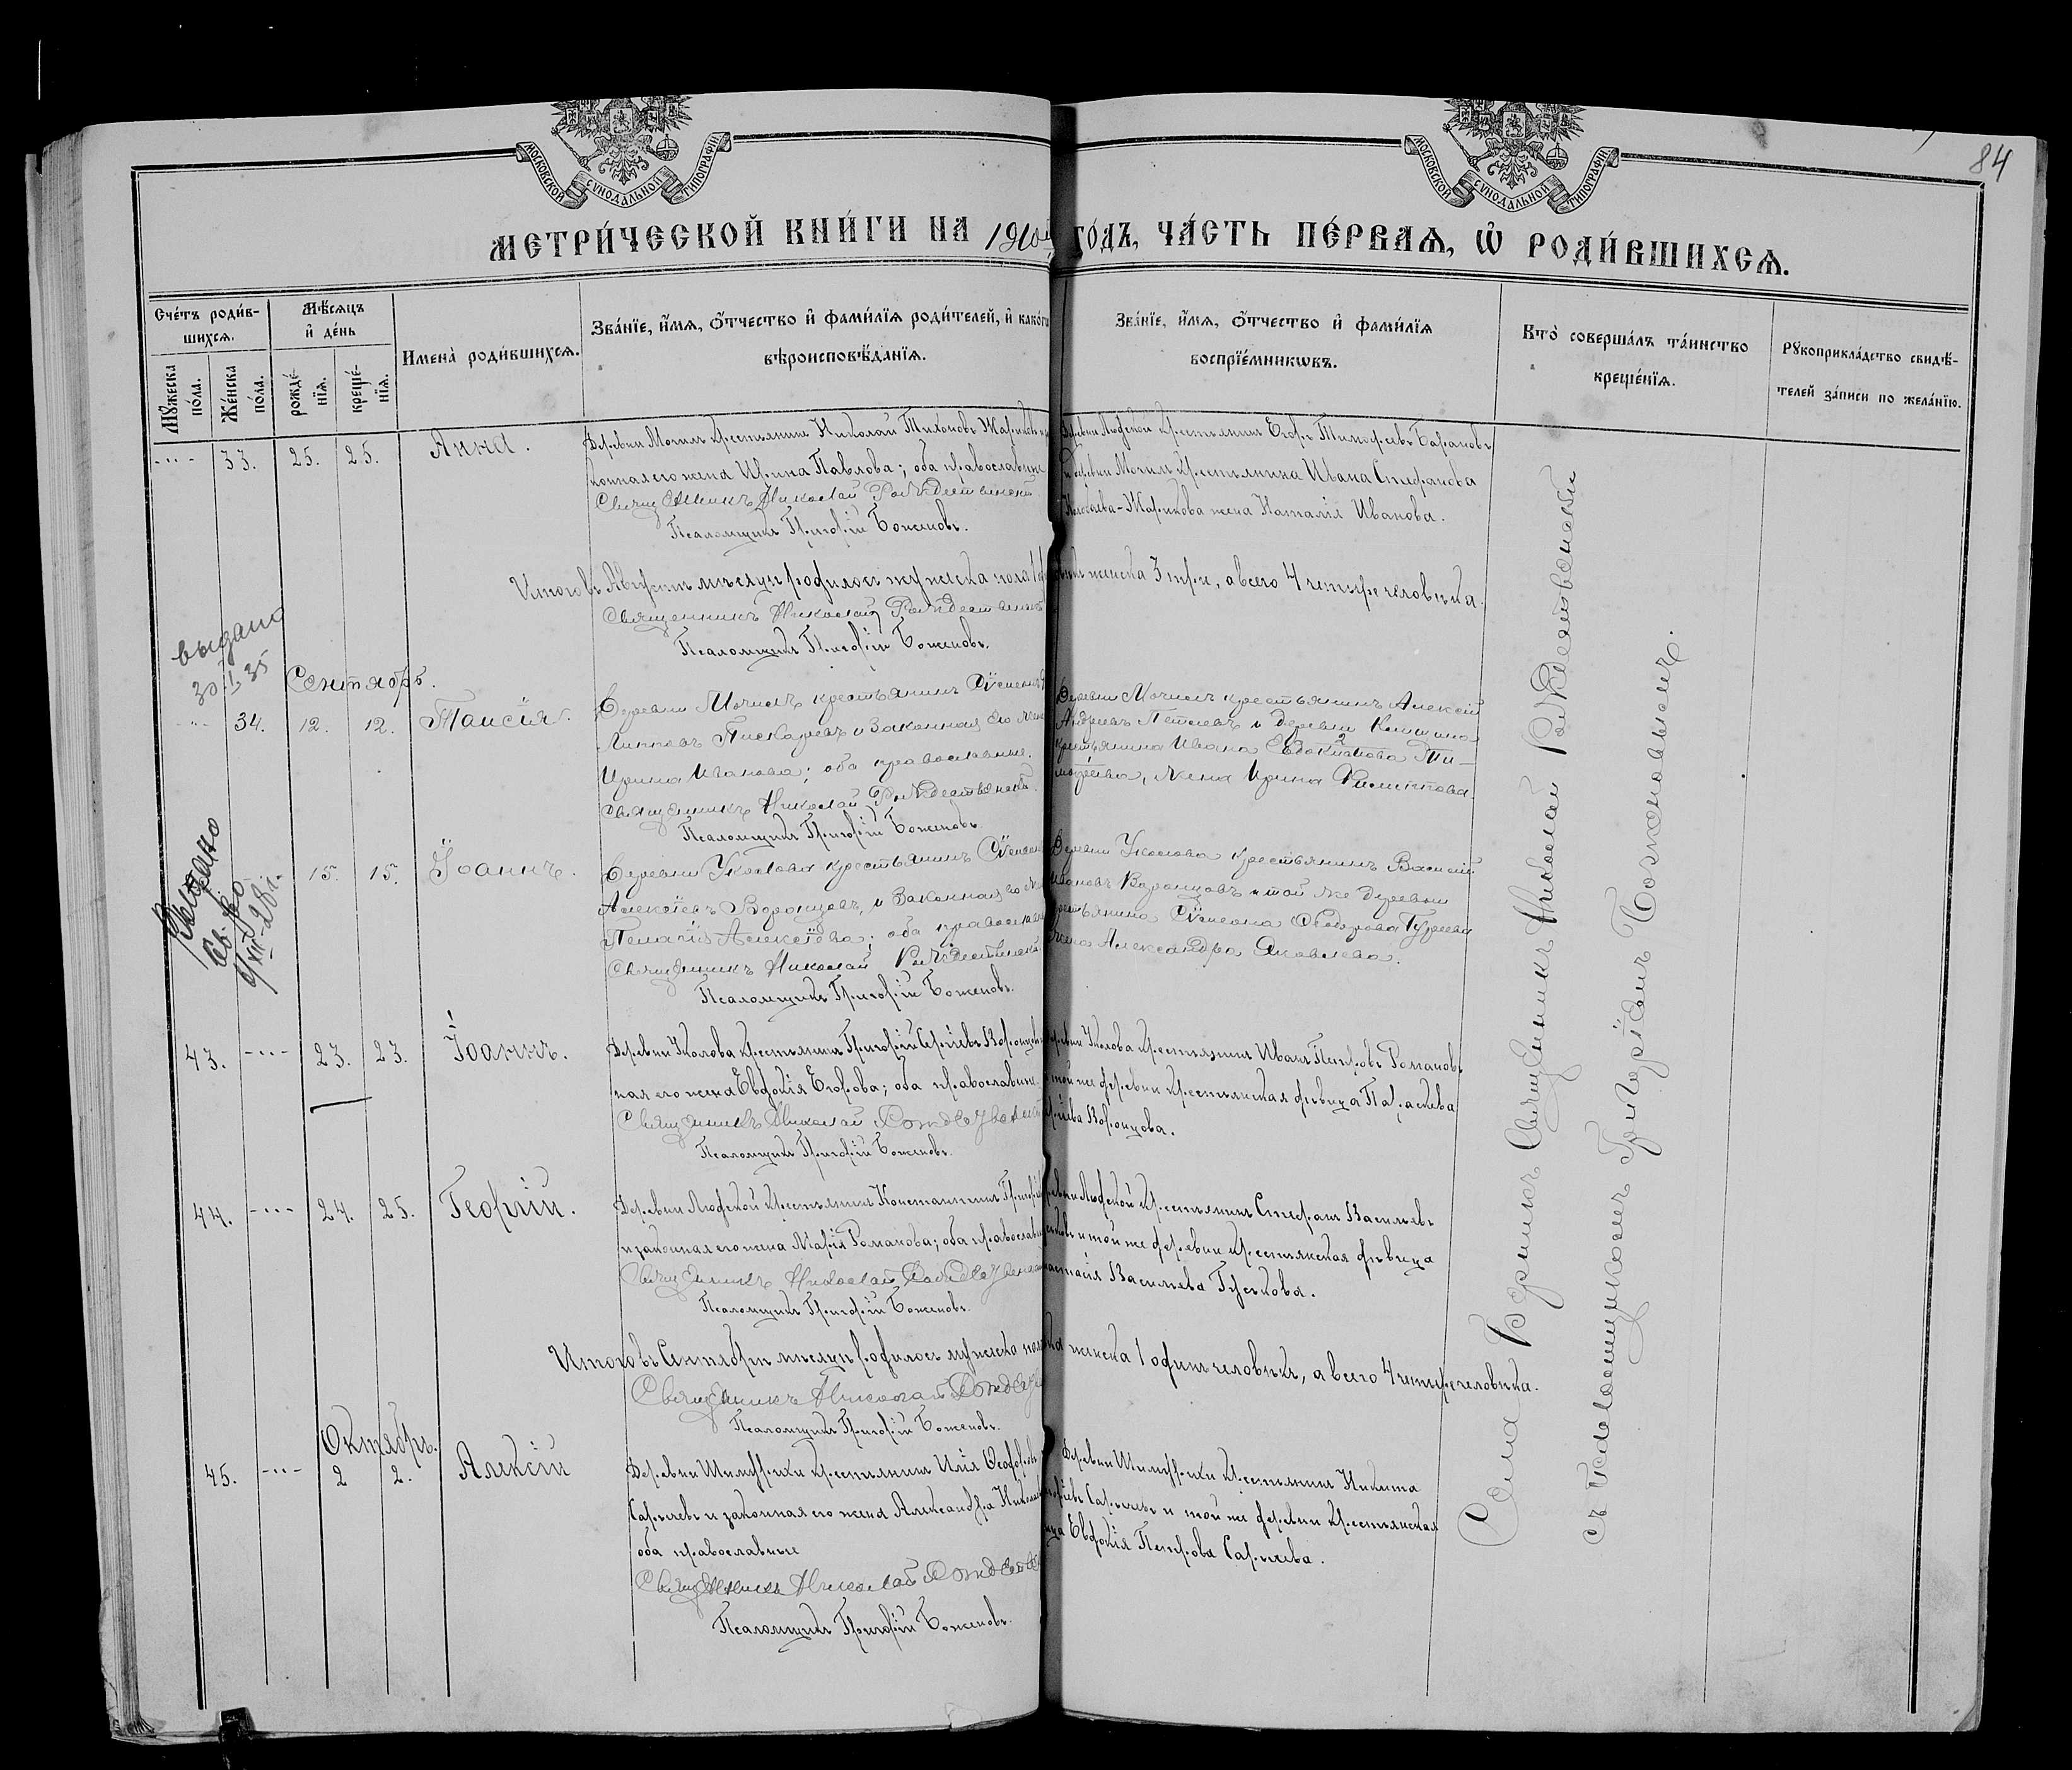 84
МОСКОВСКОЙ СѴНОДАЛЬНОЙ ТИПОГРАФІИ
МОСКОВСКОЙ СѴНОДАЛЬНОЙ ТИПОГРАФІИ
МЕТРИ́ЧЕСКОЙ КНИ́ГИ НА 1910й ГО́ДЪ, ЧА́СТЬ ПЕ́РВАѦ, Ѡ҆ РОДИ́ВШИХСѦ.
Сче́тъ роди́в-
шихсѧ.
Мꙋ́жеска по́ла.
Же́нска по́ла.
Мѣ́сѧцъ и҆ де́нь
рожде́нїѧ.
креще́нїѧ.
Имена̀ роди́вшихсѧ.
Зва́нїе, и҆́мѧ, ѻ҆́тчество и҆ фами́лїѧ роди́телей, и҆ како́гѡ
вѣроисповѣ́данїѧ.
Зва́нїе, и҆́мѧ, ѻ҆́тчество и҆ фами́лїѧ
воспрїе́мникѡвъ.
Кто̀ соверша́лъ та́инство
креще́нїѧ.
Рꙋкоприкла́дство свидѣ́-
телей за́писи по жела́нїю.
33. 25. 25. Анна.
Деревни Мочилъ крестьянинъ Николай Тихоновъ Жариковъ
конная его жена Ирина Павлова; оба православные
Священникъ Николай Рождественскій
Псаломщикъ Григорій Боженовъ.
Деревни Людской крестьянинъ Егоръ Тимофеевъ Барановъ
деревни Мочилъ крестьянина Ивана Стефанова
Жарикова жена Наталія Иванова.
Итого въ Августѣ мѣсяцѣ родилось мужеска пола 1
женска 3 три, а всего 4 четыре человѣка.
Священникъ Николай Рождественскій
Псаломщикъ Григорій Боженовъ.
выдано
30 I 35
Сентябрь.
34. 12. 12. Таисія.
Деревни Мочилъ крестьянинъ Сѵмеонъ
Пискаревъ и законная его жена
Ирина Иванова; оба православные.
Священникъ Николай Рождественскій.
Псаломщикъ Григорій Боженовъ.
Деревни Мочилъ крестьянинъ Алексій
Андреевъ и деревни
крестьянина Ивана Евдокимова Ти-
мофеева, жена Ирина Филиппова.
Выдано
9/XII-28 г.
15. 15. Іоаннъ.
Деревни Уколова крестьянинъ Сѵмеонъ
Алексѣевъ Воронцовъ, и законная его жена
Пелагія Алексѣева; оба православные
Священникъ Николай Рождественскій
Псаломщикъ Григорій Боженовъ.
Деревни Уколова крестьянинъ Василій
Ивановъ Воронцовъ и той же деревни
крестьянина Сѵмеона Ѳеодорова
жена Александра Яковлева.
43. 23. 23. Іоаннъ.
Деревни Уколова крестьянинъ Григорій Сергѣевъ Воронцовъ
ная его жена Евдокія Егорова; оба православные
Священникъ Николай Рождественскій
Псаломщикъ Григорій Боженовъ.
деревни Уколова крестьянинъ Иванъ Петровъ Романовъ
той же деревни крестьянская дѣвица Параскева
Воронцова.
44. 24. 25. Георгій.
Деревни Людской крестьянинъ Константинъ
и законная его жена Марія Романова; оба православные
Священникъ Николай Рождественскій
Псаломщикъ Григорій Боженовъ.
деревни Людской крестьянинъ Стефанъ Васильевъ
и той же деревни крестьянская дѣвица
Васильева Гуськова.
Итого въ Сентябрѣ мѣсяцѣ родилось мужеска пола
женска 1 одинъ человѣкъ, а всего 4 четыре человѣка.
Священникъ Николай
Псаломщикъ Григорій Боженовъ.
Октябрь.
45. 2 2. Алексій
Деревни крестьянинъ Илія Ѳеодоровъ
Сарычевъ и законная его жена Александра
оба православные
Священникъ Николай
Псаломщикъ Григорій Боженовъ.
Деревни крестьянинъ Никита
Сарычевъ и той же деревни крестьянская
Евдокія Петрова Сарычева.
Села Священникъ Николай Рождественскій
съ Псаломщикомъ Григоріемъ Боженовымъ.